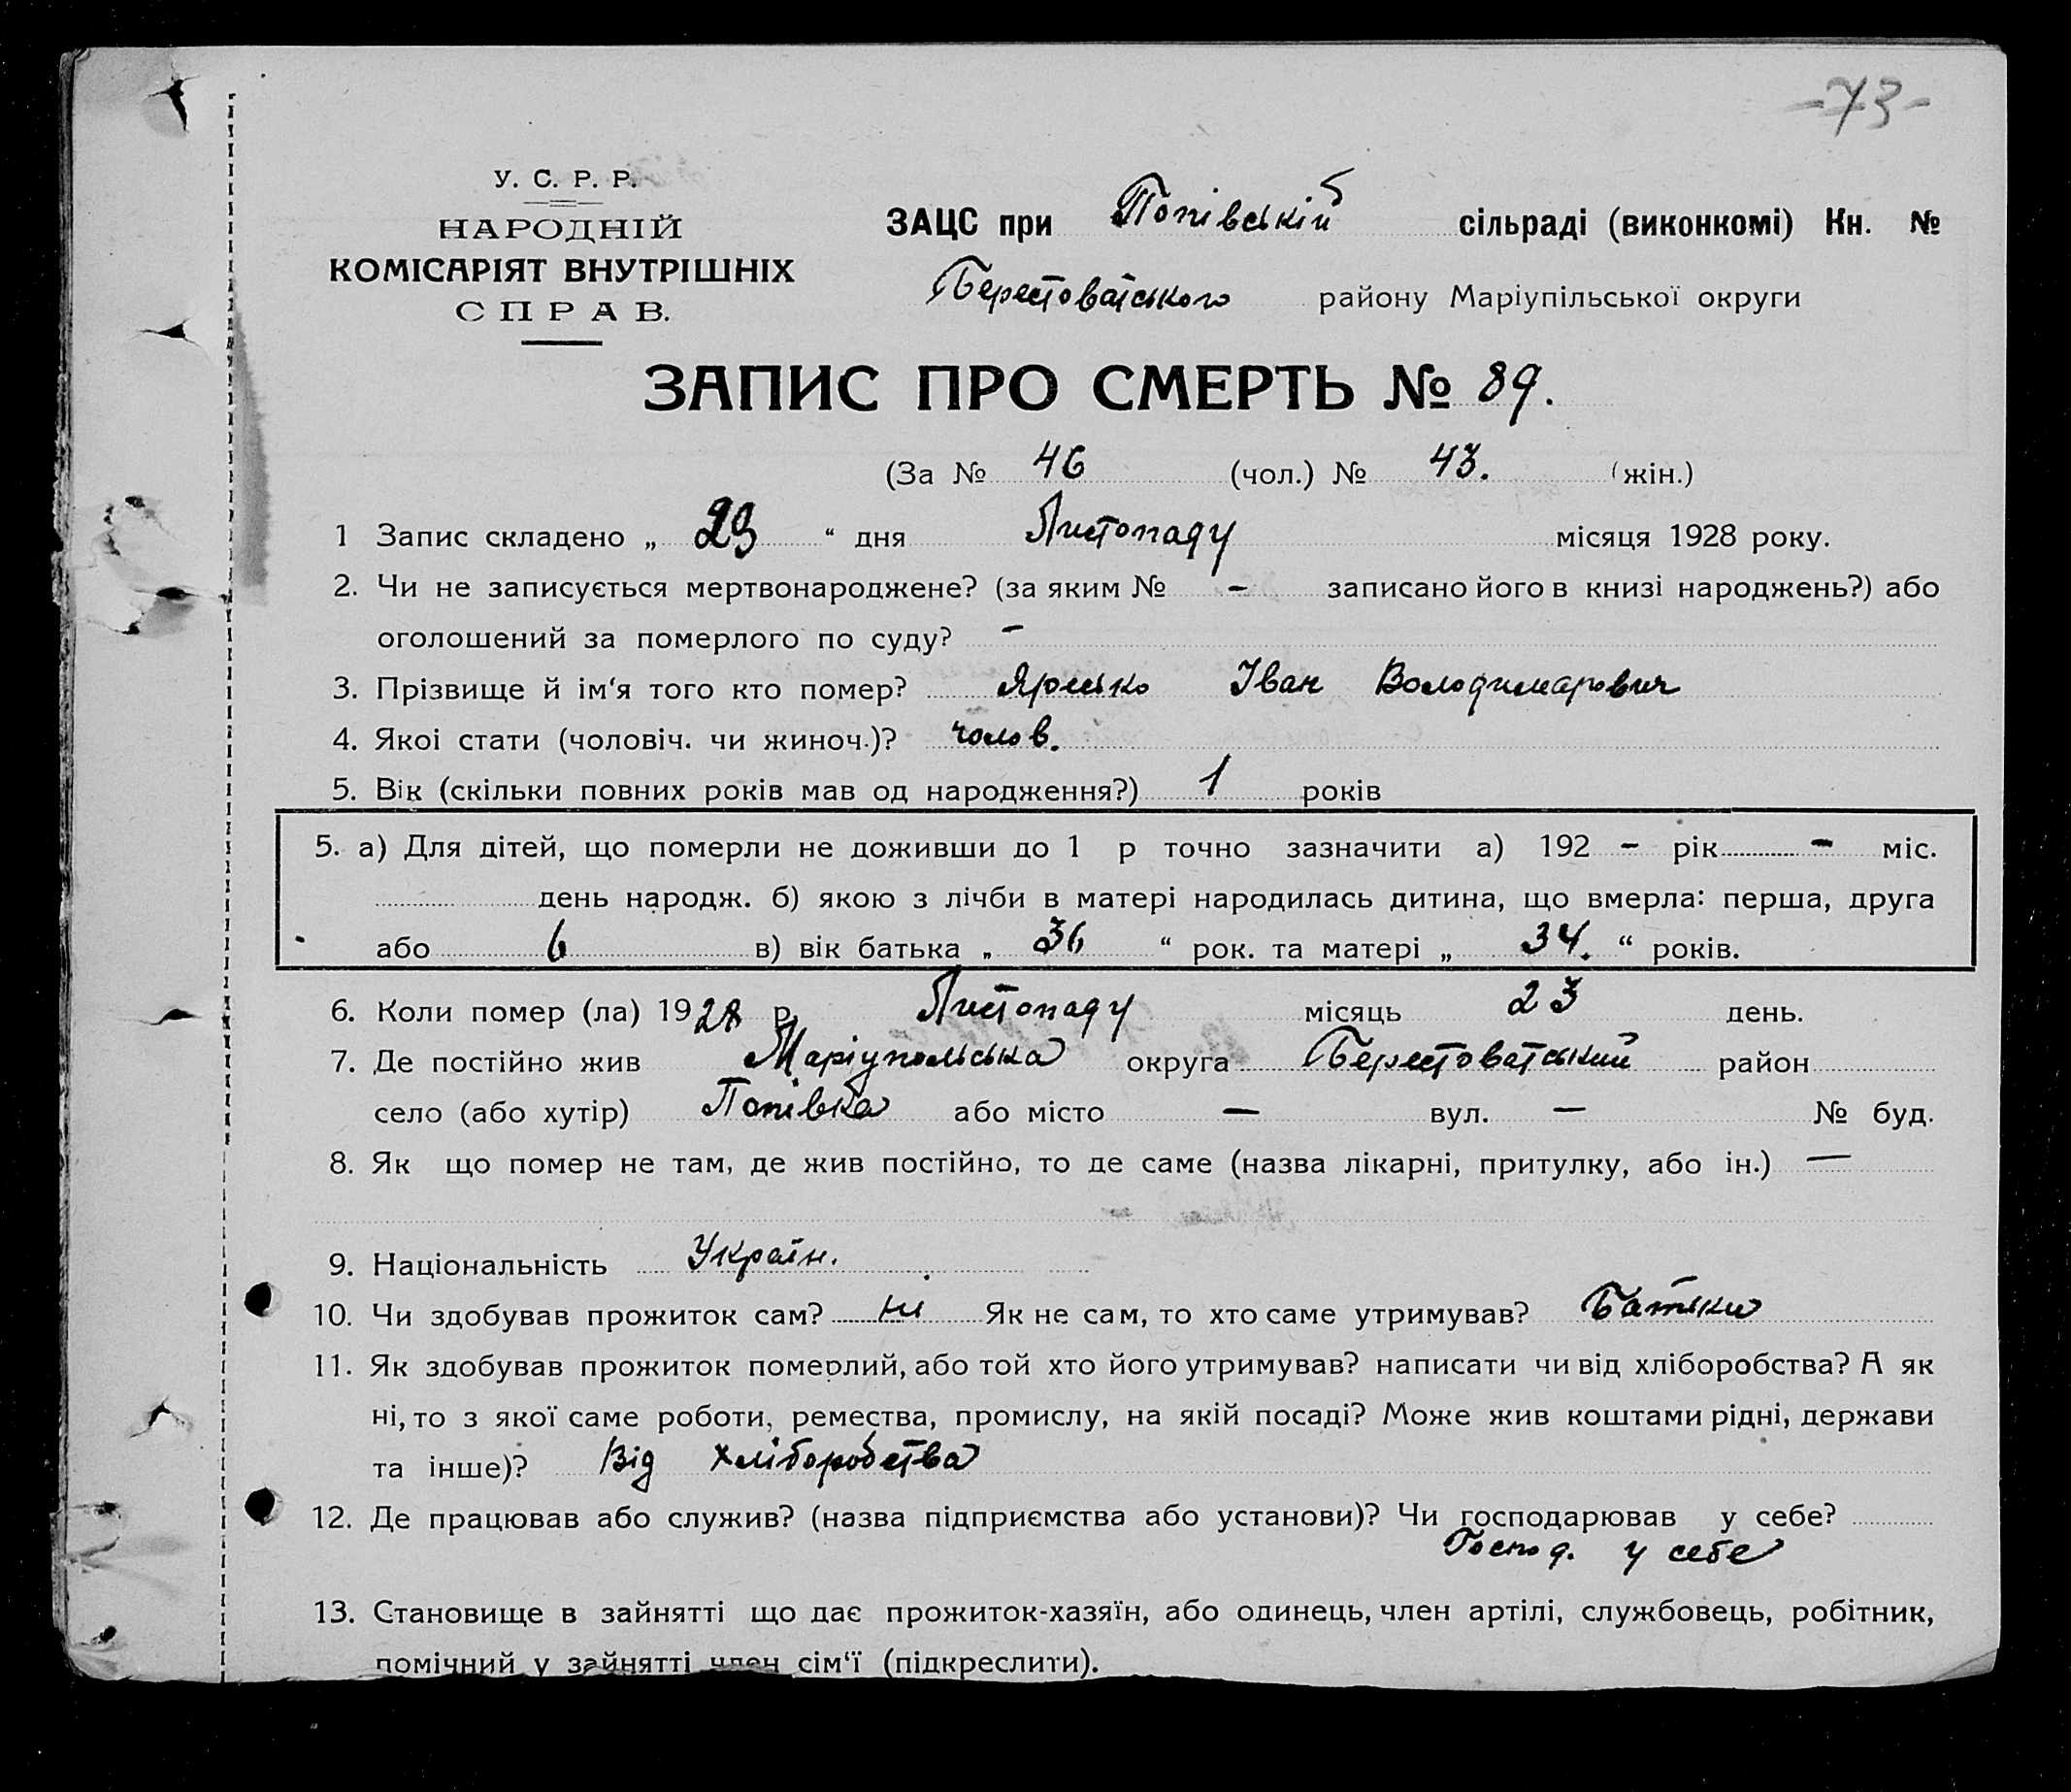 -73-
У. С. Р. Р.
НАРОДНІЙ
КОМІСАРІЯТ ВНУТРІШНІХ
СПРАВ.
ЗАЦС при Попівській сільраді (виконкомі) Кн. №
Берестоватського району Маріупільської округи
ЗАПИС ПРО СМЕРТЬ № 89.
(За № 46 (чол.) № 43. (жін.)
1 Запис складено „ 23 “ дня Листопаду місяця 1928 року.
2. Чи не записується мертвонароджене? (за яким № - записано його в книзі народжень?) або
оголошений за померлого по суду? -
3. Прізвище й ім‘я того кто помер? Іван Володимарович
4. Якоі стати (чоловіч. чи жиноч.)? чолов.
5. Вік (скільки повних років мав од народження?) 1 років
5. а) Для дітей, що померли не доживши до 1 р точно зазначити а) 192 - рік - міс.
день народж. б) якою з лічби в матері народилась дитина, що вмерла: перша, друга
або 6 в) вік батька „ 36 “ рок. та матері „ 34. “ років.
6. Коли помер (ла) 1928 р. Листопаду місяць 23 день.
7. Де постійно жив Маріупольська округа Берестоватський район
село (або хутір) Попівка або місто — вул. — № буд.
8. Як що помер не там, де жив постійно, то де саме (назва лікарні, притулку, або ін.) —
9. Національність Україн.
10. Чи здобував прожиток сам? ні Як не сам, то хто саме утримував? Батьки
11. Як здобував прожиток померлий, або той хто його утримував? написати чи від хліборобства? А як
ні, то з якої саме роботи, ремества, промислу, на якій посаді? Може жив коштами рідні, держави
та інше)? Від хліборобства
12. Де працював або служив? (назва підприємства або установи)? Чи господарював у себе?
Господ. у себе
13. Становище в зайнятті що дає прожиток-хазяїн, або одинець, член артілі, службовець, робітник,
помічний у зайнятті член сім‘ї (підкреслити).